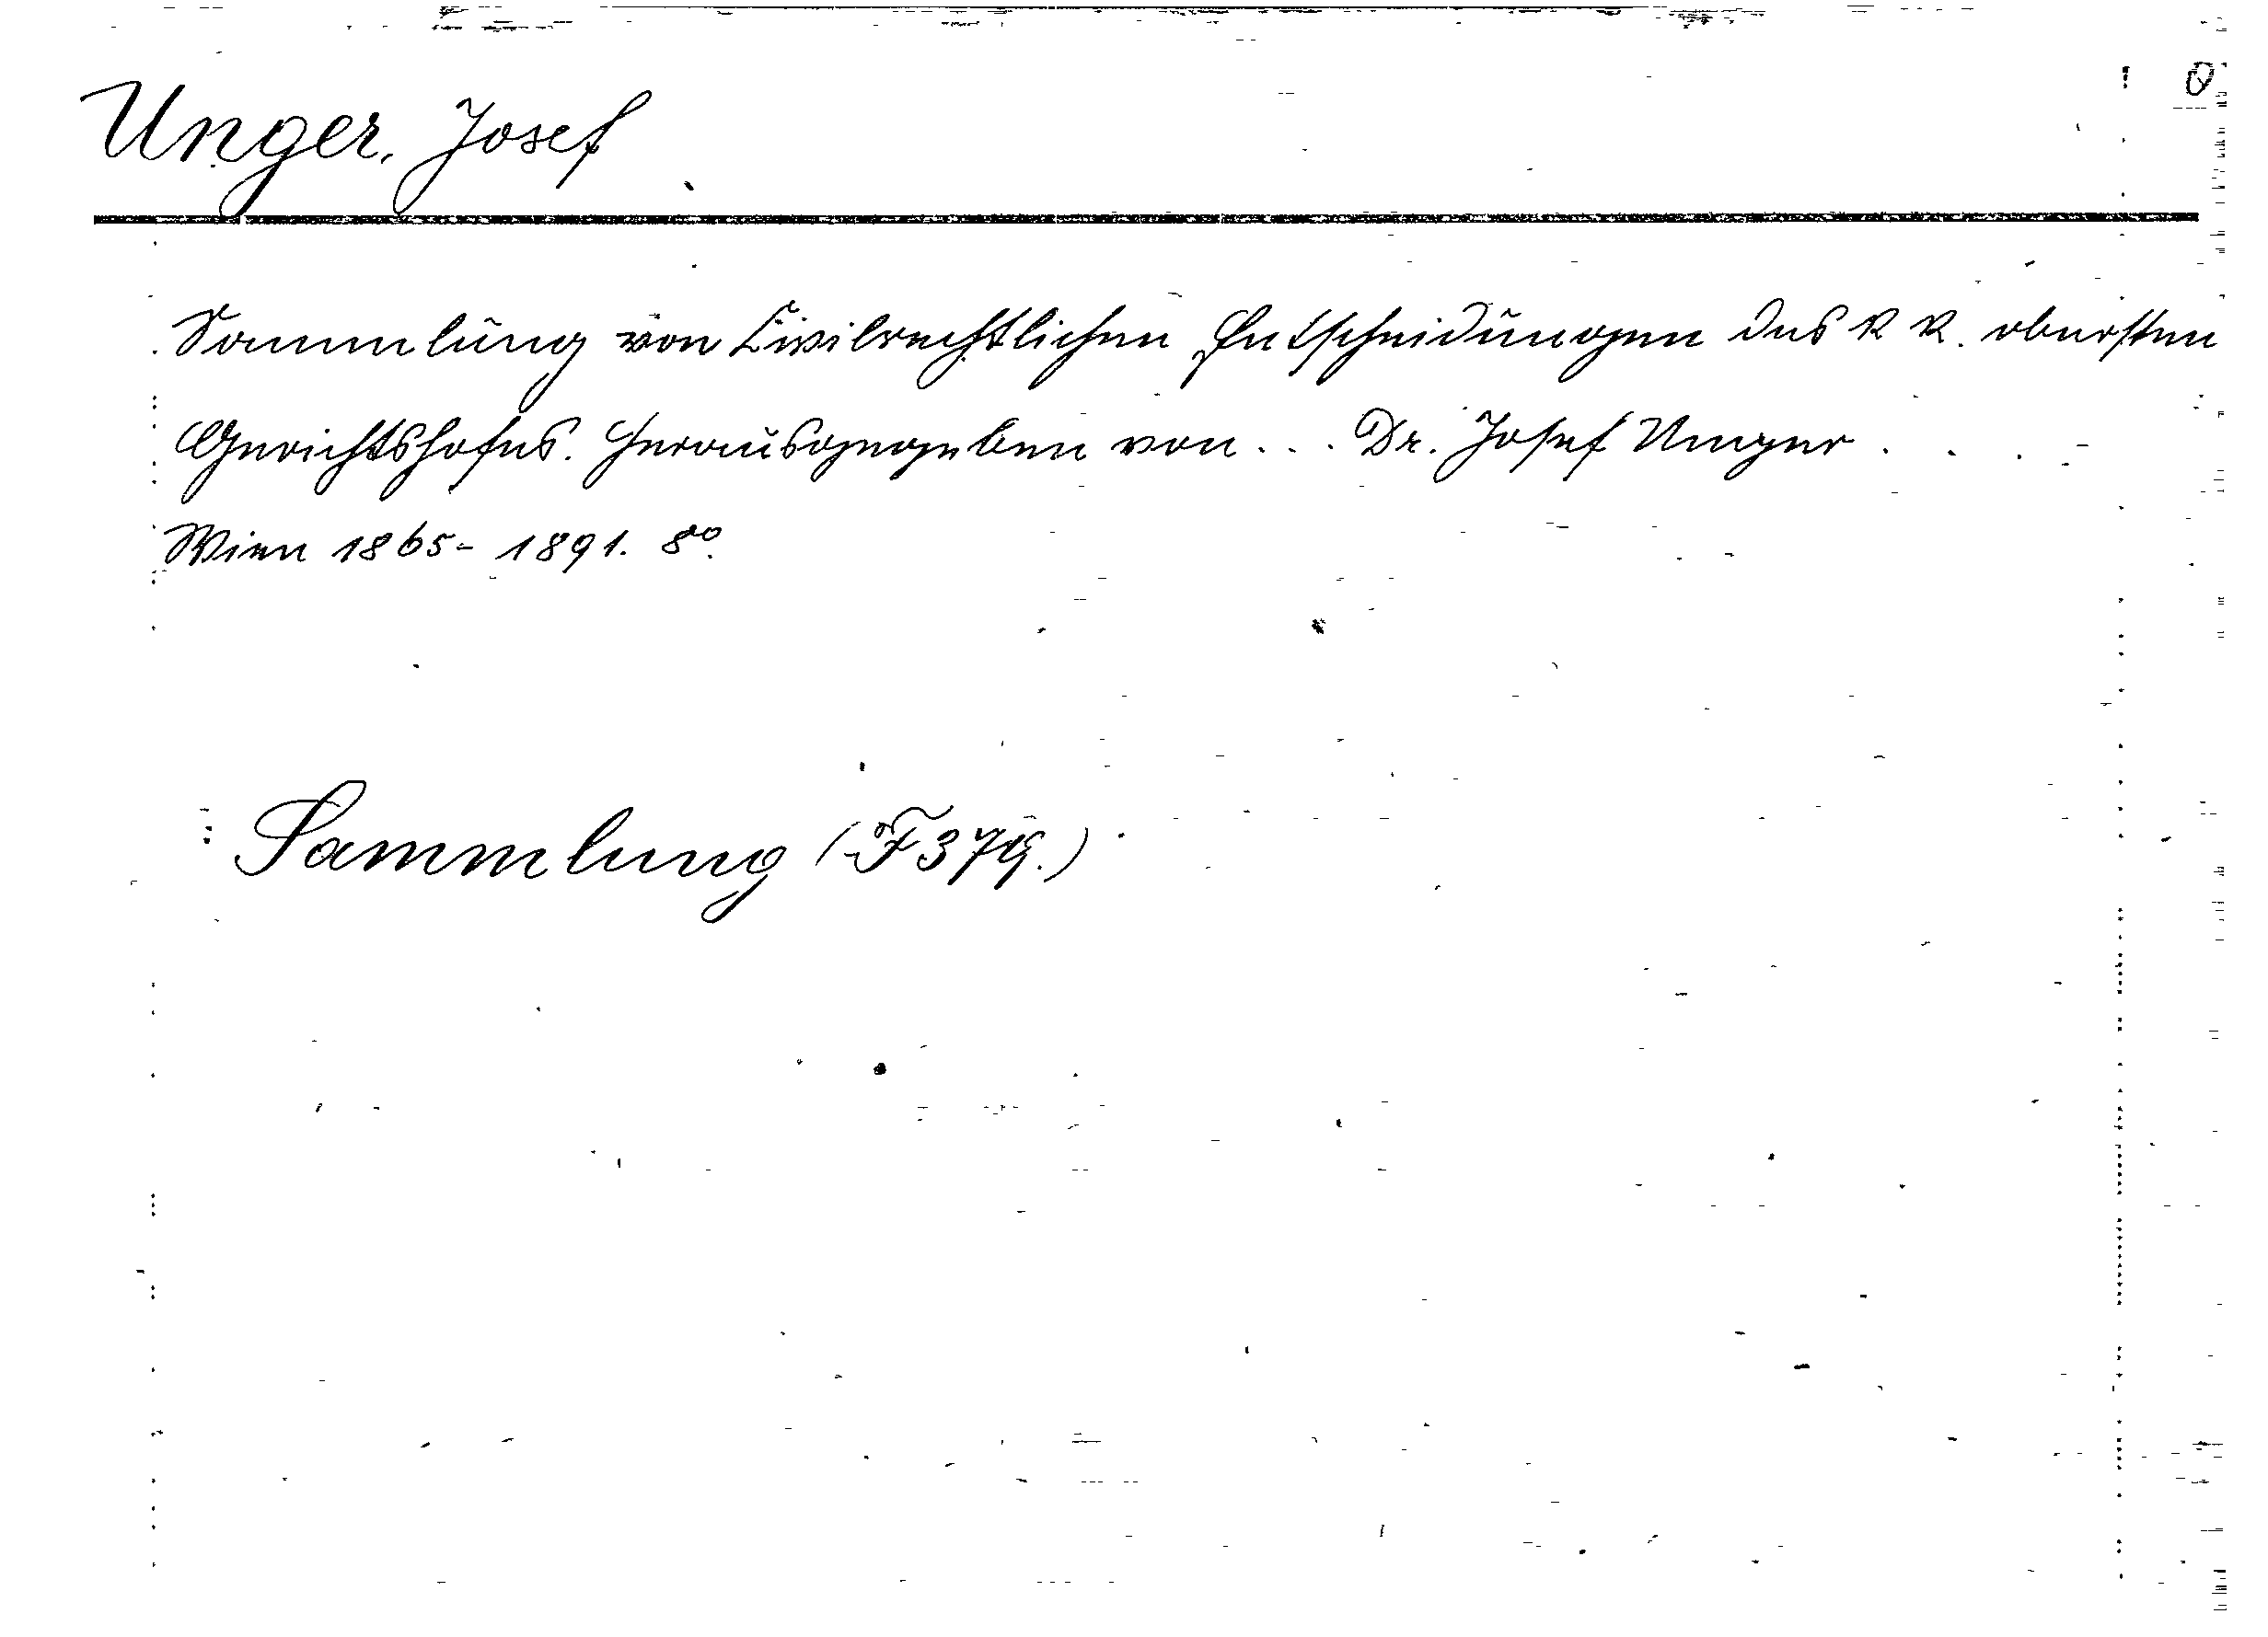 Unger, Josef
Sammlung von Civilrechtlichen Entscheidungen des k k. obersten
Gerichtshofes. Herausgegeben von... Dr. Josef Unger . . .
Wien 1865-1891. 8°.
Sammlung